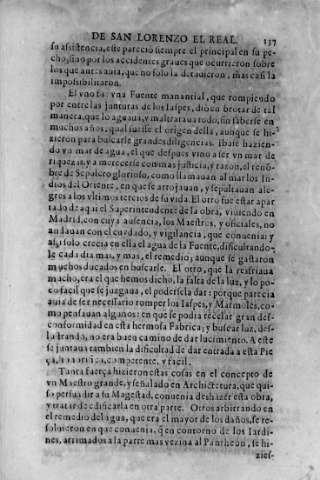 DE SAN LORENZO EL REAL. 137
su asistencia, este pareció siempre el principal en su pe-
cho, sino por los accidentes graues que ocurrieron sobre
los que antes auia, que no solo la detauieron, mas casi la
impossibilitaron.
El vno fue vna Fuente manantial, que rompiendo
por entre las junturas de los Iaspes, dió en brotar de tal
manera, que lo aguaua, y maltrataua todo, sin saberse en
muchos años, qual fuesse el origen della, aunque se hi-
zieron para buscarle grandes diligencias. Ibase hazien-
do vn mar de agua, el que despues vino a ser vn mar de
riquezas, y a merecerse con mas justicia, y razon, el renõ-
bre de Sepulcro glorioso, como llamauan al mar los In-
dios del Oriente, en que se arrojauan, y sepultauan ale-
gres a los vltimos tercios de su vida. El otro fue estar apar
tado de aqui el Superintendente de la obra, viuiendo en
Madrid, con cuya ausencia, los Maestros, y oficiales, no
andauan con el cuydado, y vigilancia, que conuenia; y
assi solo crecia en ella el agua de la Fuente, dificultando-
le cada dia mas, y mas, el remedio; aunque se gastaron
muchos ducados en buscarle. El otro, que la resfriaua
mucho, era el que hemos dicho, la falta de la luz, y lo po-
co facil que se juzgaua, el podersela dar: porque parecia
auia de ser necessario romper los Iaspes, y Marmoles, co-
mo pensauan algunos: en que se podia recelar gran des-
conformidad en esta hermosa Fabrica; y buscar luz, des-
lustrando, no era buen camino de dar lucimiento. A este
se juntaua tambien la dificultad de dar entrada a esta Pie
ça, competente, y facil.
Tanta fuerça hizieron estas cosas en el concepto de
vn Maestro grande, y señalado en Architectura, que qui-
so persuadir a su Magestad, conuenia deshazer esta obra,
y tratar de edificarla en otra parte. Otros arbitrando en
el remedio del agua, que era el mayor de los daños, se re-
soluieron en que conuenia, q̃ en contorno de los Iardi-
nes, arrimados a la parte mas vezina al Pantheon, se hi-
zies-